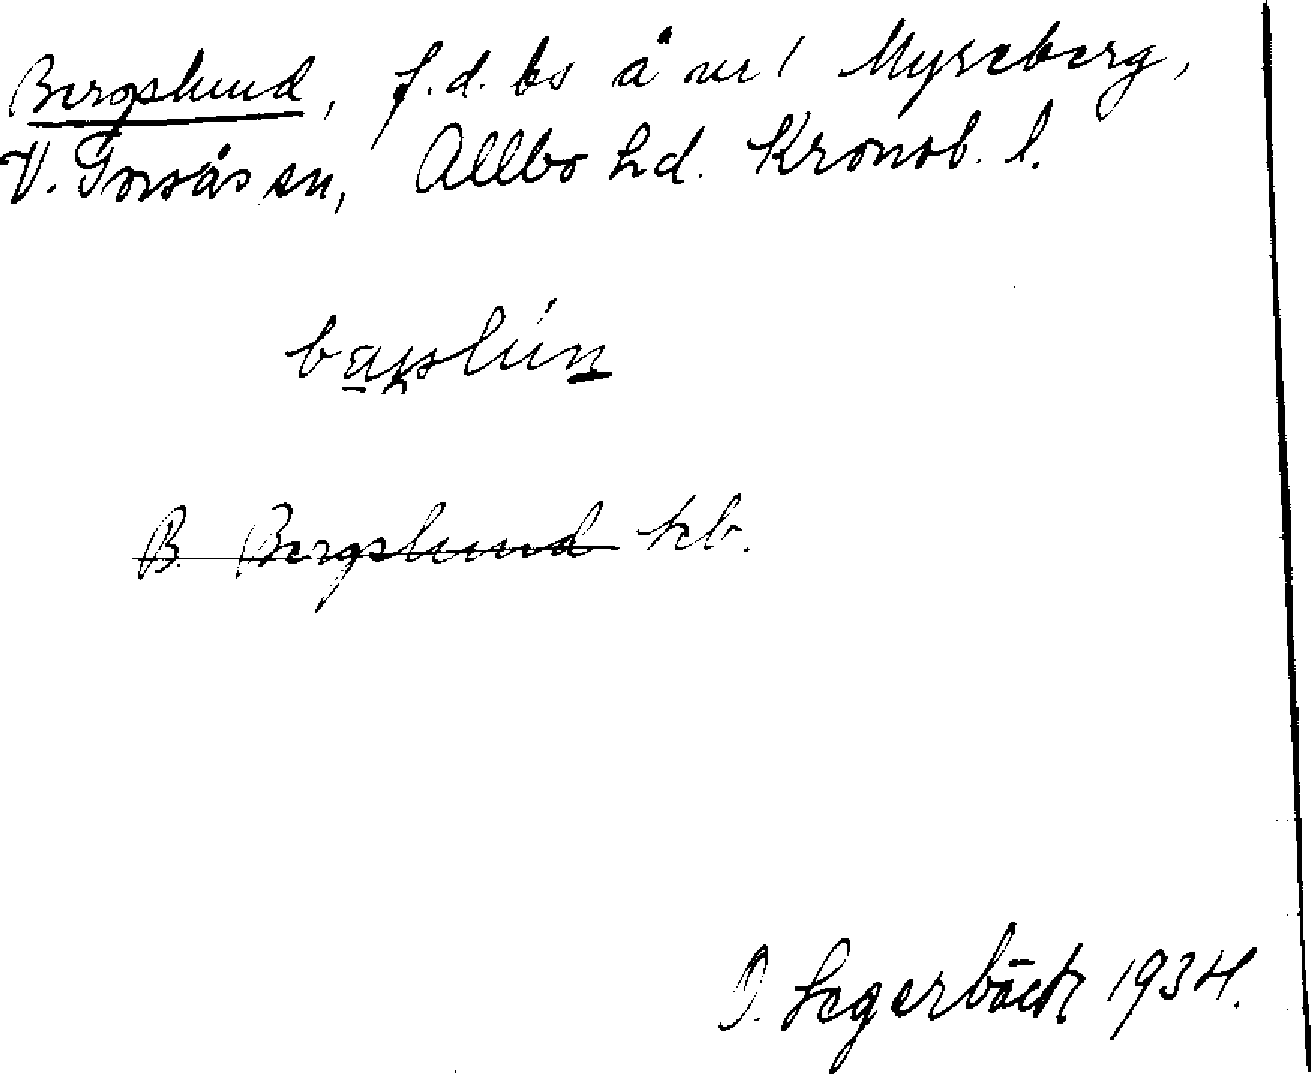 Bergslund, f.d. bs å nr 1 Myreberg,
V. Torsås sn, Allbo hd. Kronob. l.
B. Bergslund kb.
J. Lagerbäck 1934.